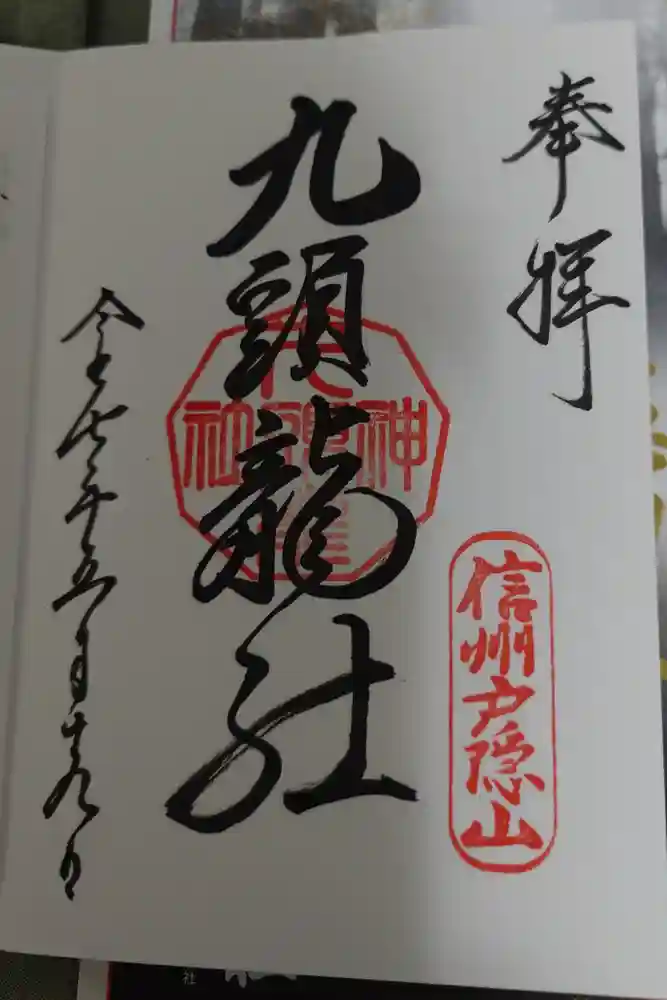 奉拝
信州戸隠山
九頭龍社
令和七年五月十九日
社